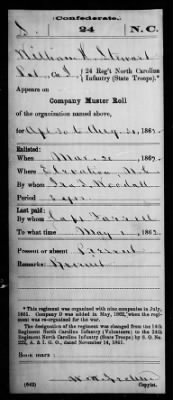 Confederate.
S. 24 N.C.
William R. Stewart
Co. 24 Reg't North Carolina
Infantry (State Troops).*
Appears on
Company Muster Roll
of the organization named above,
for Apl 30 to Aug. 31, 1862.
Enlisted:
When Mar. 20, 1862.
Where N.C.
By whom Woodall
Period 3 yrs.
Last paid:
By whom Capt. Farrell
To what time May 1, 1862.
Present or absent Present
Remarks: Recruit
*This regiment was organized with nine companies in July,
1861. Company D was added in May, 1862, when the regi-
ment was re-organized for the war.
The designation of the regiment was changed from the 14th
Regiment North Carolina Infantry (Volunteers) to the 24th
Regiment North Carolina Infantry (State Troops) by S. O. No.
222, A. & I. G. O., dated November 14, 1861.
Book mark:
(642) Copyist.